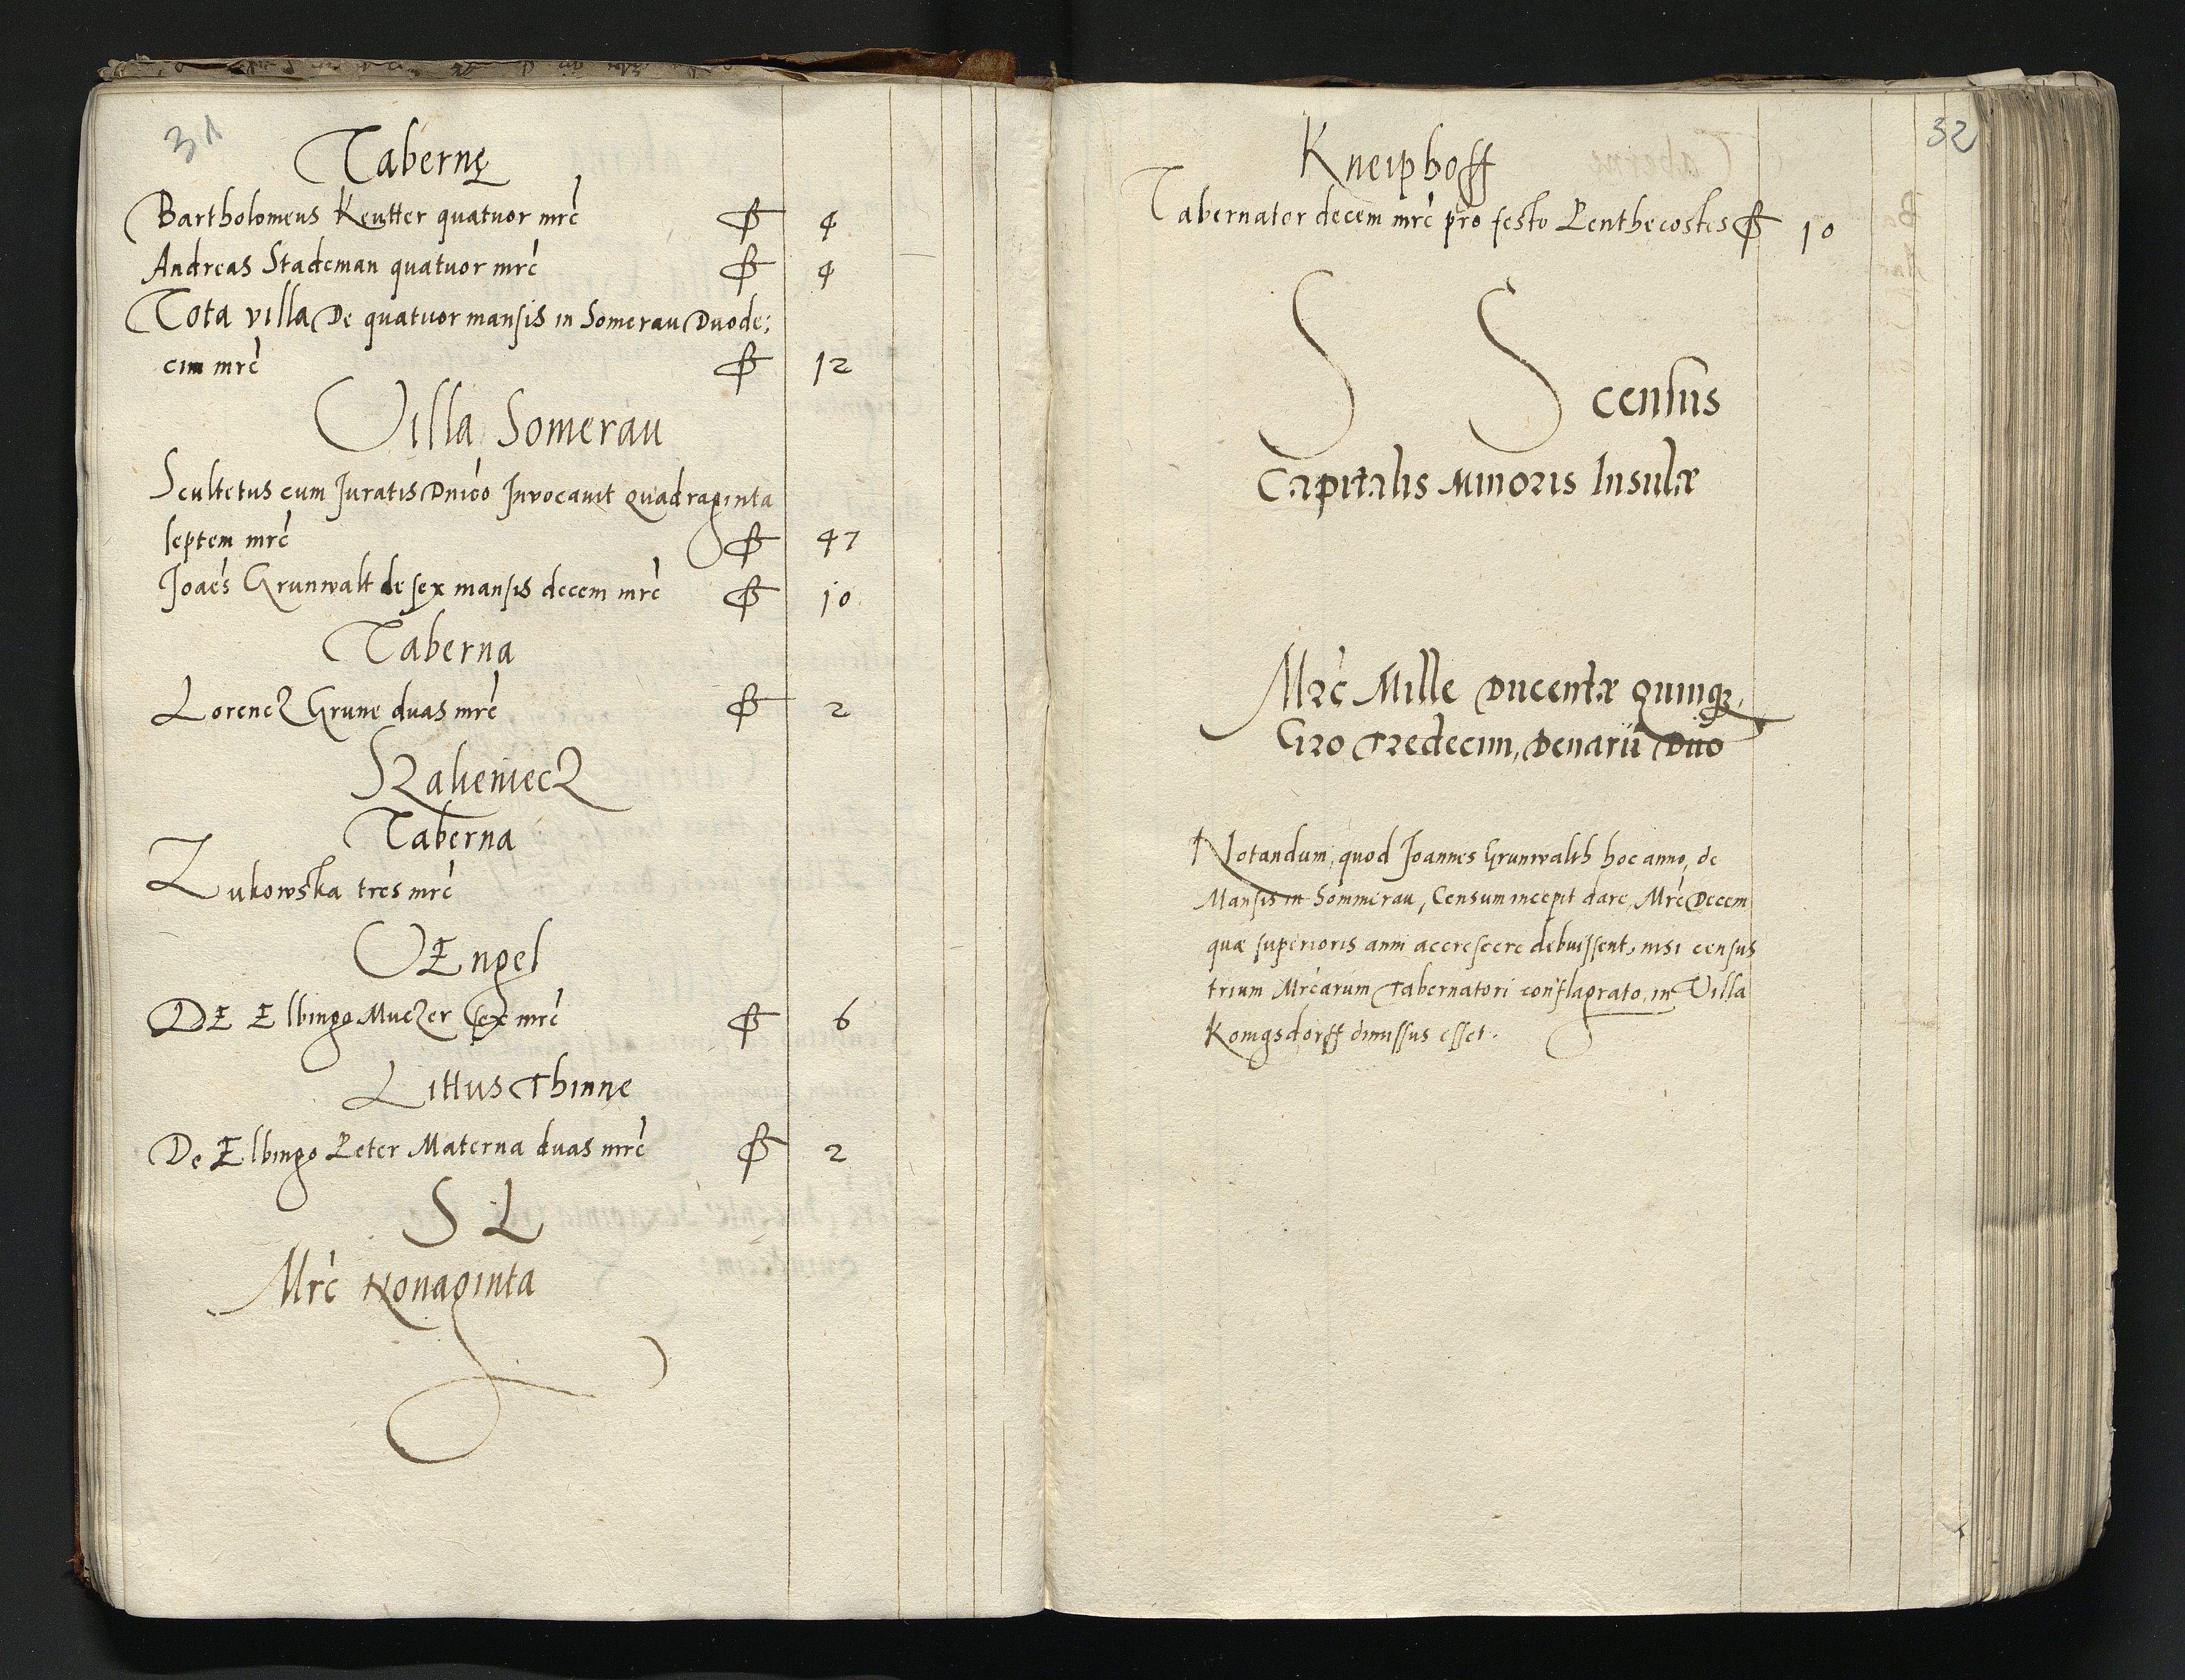 31
Tabernę
Bartholomeus Keutter quatuor mrc 4
Andreas Stademan quatuor mrc 4
Tota villa De quatuor mansis in Somerau Duode;
cim mrc 12
Villa Somerau
Scultetus cum Juratis Dnico Invocavit quadraginta
septem mrc 47
Joaes Grunwalt de sex mansis decem mrc 10
Taberna
Lorencz Grune duas mrc 2
Taberna
Zukowska tres mrc
Engel
DE Elbingo Muczer sex mrc 6
Littus Thinnę
De Elbingo Peter Materna duas mrc 2
S L
Mrc Nonaginta
32
Kneiphoff
Tabernator decem mrc pro festo Penthecostes 10
S S census
Capitalis Minoris Insulæ
Mrc Mille Ducentæ quinqz
Gro Tredecim, Denarii Duo
Notandum, quod Joannes Grunwalth hoc anno, de
Mansis in Sommerau, Censum incepit dare, Mrc Decem
quæ superioris anni accrescere debuissent, nisi census
trium Mrcarum Tabernatori conflagrato, in Villa
Konigsdorff dimissus esset.